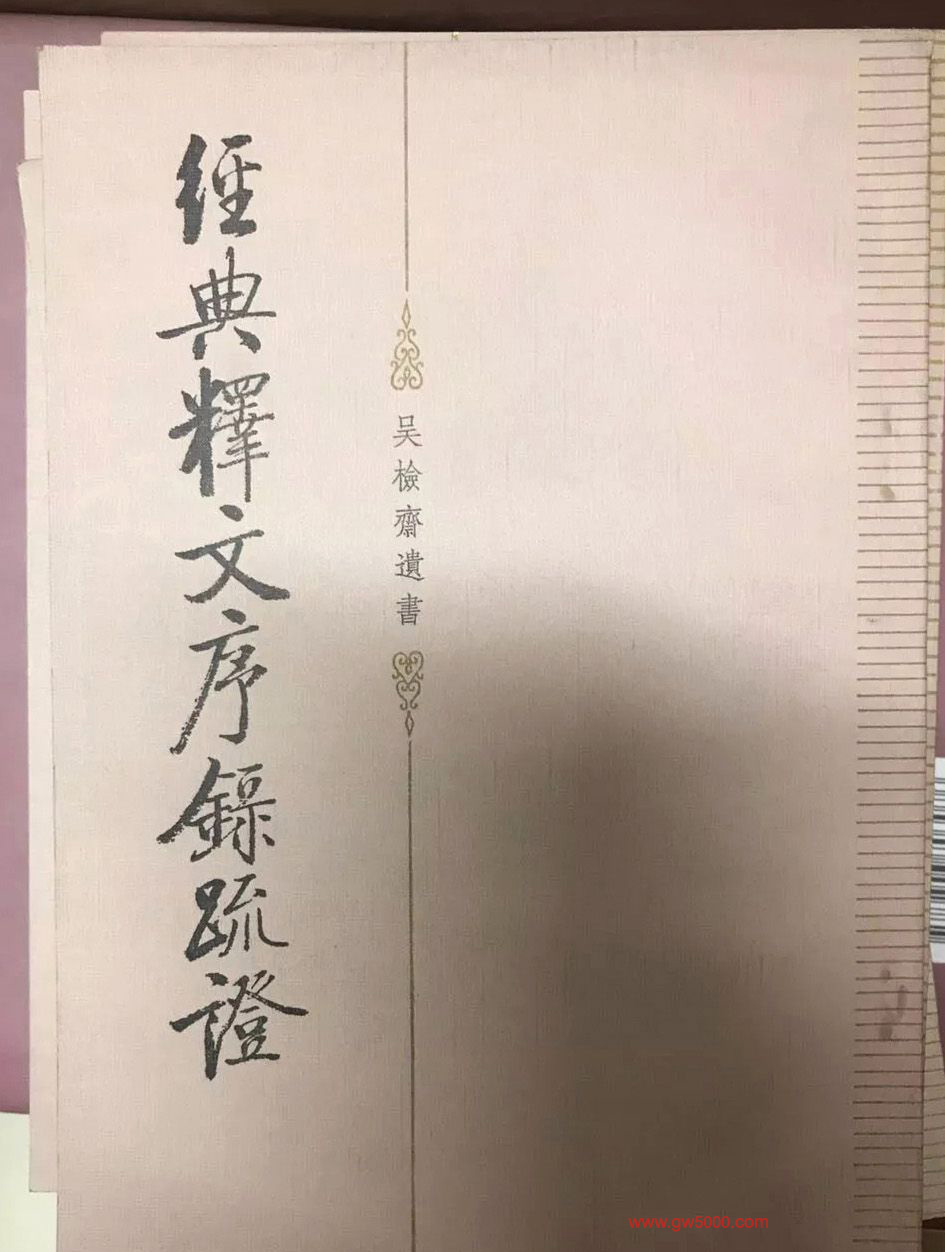 經典釋文序錄疏證
吴檢齋遺書
www.gw5000.com